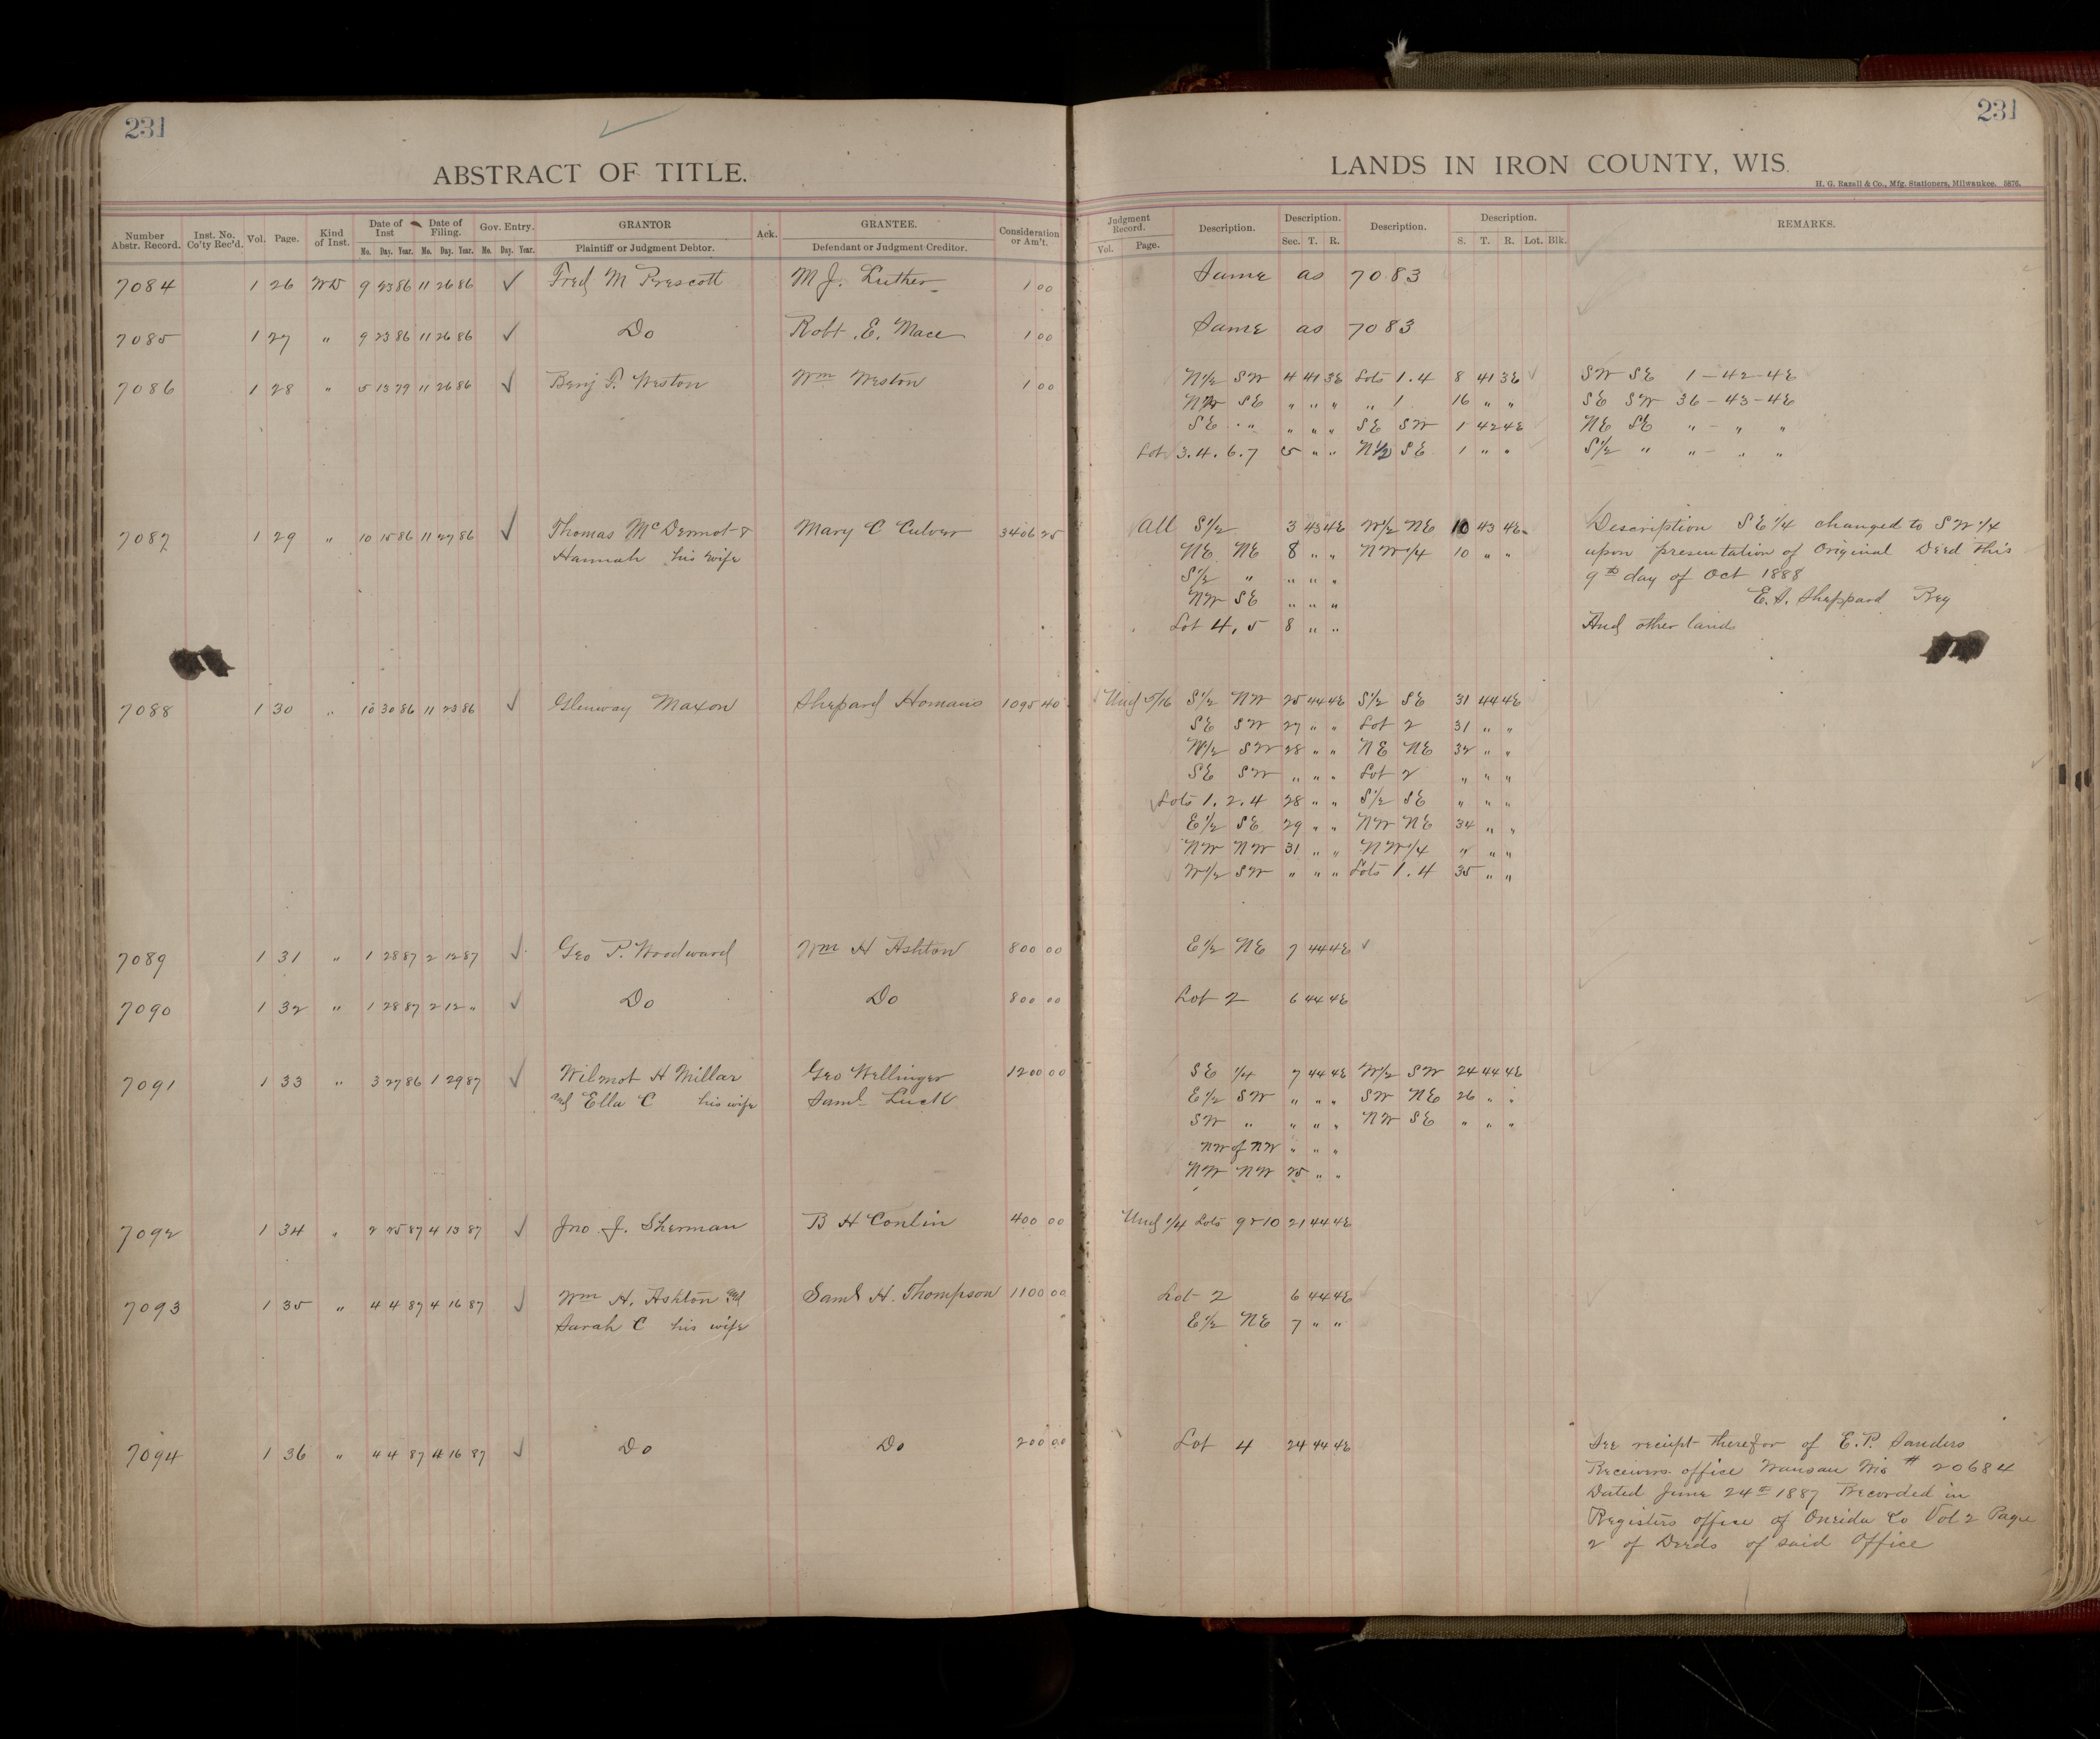 231
231
ABSTRACT OF TITLE.
LANDS IN IRON COUNTY, WIS.
H. G. Razall & Co., Mfg. Stationers, Milwaukee. 5876.
Number Abstr. Record. Inst. No. Co'ty Rec'd. Vol. Page. Kind of Inst. Date of Inst Mo. Day. Year. Date of Filing. Mo. Day. Year. Gov. Entry. Mo. Day. Year. GRANTOR Plaintiff or Judgment Debtor. Ack. GRANTEE. Defendant or Judgment Creditor. Consideration or Am't.
Judgment Record. Vol. Page. Description. Description. Sec. T. R. Description. Description. S. T. R. Lot. Blk. REMARKS.
7084 1 26 WD 9 23 86 11 26 86 ✓ Fred M Prescott M J. Luther 1 00 Same as 7083
7085 1 27 " 9 23 86 11 26 86 ✓ Do Robt. E. Mace 1 00 Same as 7083
7086 1 28 " 5 13 79 11 26 86 ✓ Benj F. Weston Wm Weston 1 00 N1/2 SW 4 41 3E Lots 1.4 8 41 3E SW SE 1-42-4E
NW SE " " " " 1 16 " " SE SW 36-43-4E
SE " " " " SE SW 1 42 4E NE SE " - " "
Lot 3.4.6.7 5 " " N1/2 SE 1 " " S1/2 " " - " "
7087 1 29 " 10 15 86 11 27 86 ✓ Thomas McDermot & Mary C Culver 3406 25 All S1/2 3 43 4E W1/2 NE 10 43 4E Description SE 1/4 changed to SW 1/4
Hannah his wife NE NE 8 " " NW 1/4 10 " " upon presentation of Original Deed this
S1/2 " " " " 9th day of Oct 1888
NW SE " " " E. S. Sheppard Reg
Lot 4, 5 8 " " And other lands
7088 1 30 " 10 30 86 11 23 86 ✓ Glenway Maxon Shepard Homans 1095 40 Und 5/16 S1/2 NW 25 44 4E S1/2 SE 31 44 4E
SE SW 27 " " Lot 2 31 " "
W1/2 SW 28 " " NE NE 32 " "
SE SW " " " Lot 2 " " "
Lots 1.2.4 28 " " S1/2 SE " " "
E1/2 SE 29 " " NW NE 34 " "
NW NW 31 " " NW 1/4 " " "
W1/2 SW " " " Lots 1.4 35 " "
7089 1 31 " 1 28 87 2 12 87 ✓ Geo P. Woodward Wm H Ashton 800 00 E1/2 NE 7 44 4E ✓
7090 1 32 " 1 28 87 2 12 " ✓ Do Do 800 00 Lot 2 6 44 4E
7091 1 33 " 3 27 86 1 29 87 ✓ Wilmot H Millar Geo Wellinger 1200 00 SE 1/4 7 44 4E W1/2 SW 24 44 4E
and Ella C his wife Saml Luck E1/2 SW " " " SW NE 26 " "
SW " " " " NW SE " " "
NW of NW " " "
NW NW 25 " "
7092 1 34 " 2 25 87 4 13 87 ✓ Jno. J. Sherman B H Conlin 400 00 Und 1/4 Lots 9 & 10 21 44 4E
7093 1 35 " 4 4 87 4 16 87 ✓ Wm H. Ashton and Saml H. Thompson 1100 00 Lot 2 6 44 4E
Sarah C his wife E1/2 NE 7 " "
7094 1 36 " 4 4 87 4 16 87 ✓ Do Do 200 00 Lot 4 24 44 4E See reciept therefor of E. P. Sanders
Receivers office Wausau Wis # 20684
Dated June 24th 1887 Recorded in
Registers office of Oneida Co Vol 2 Page
2 of Deeds of said Office